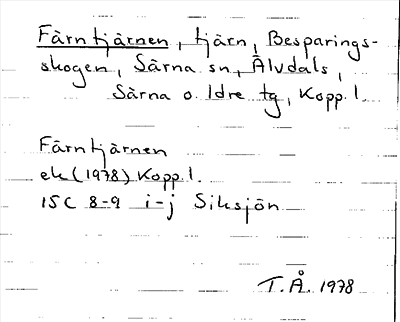 Färntjärnen, tjärn, Besparings-
skogen, Särna sn, Älvdals,
Särna o Idre tg, Kopp. l.
Färntjärnen
ek (1978) Kopp. l.
15C 8-9 i-j Siksjön
T.Å. 1978